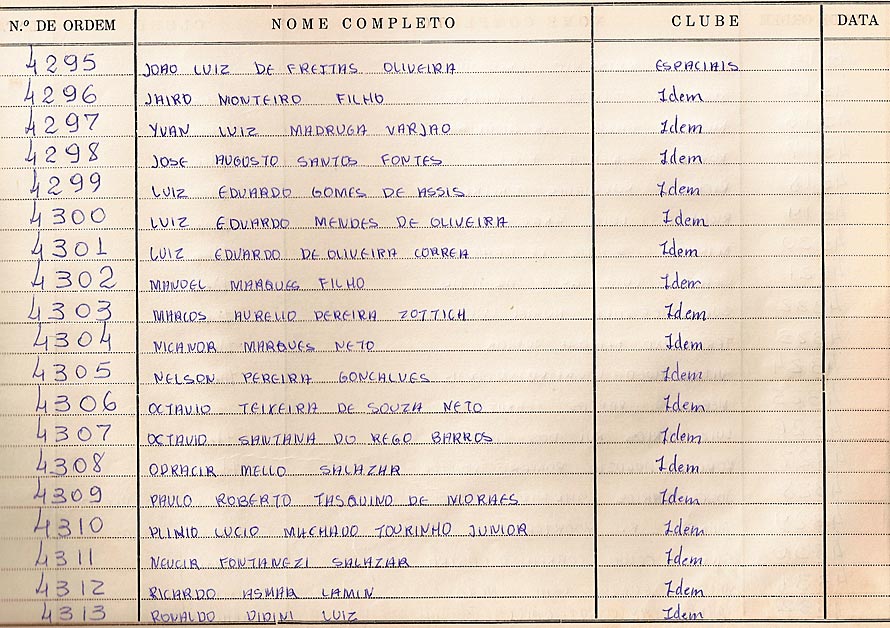 N.º DE ORDEM NOME COMPLETO CLUBE DATA
4295 JOAO LUIZ DE FREITAS OLIVEIRA ESPACIAIS
4296 JAIRO MONTEIRO FILHO Idem
4297 YVAN LUIZ MADRUGA VARJAO Idem
4298 JOSE AUGUSTO SANTOS FONTES Idem
4299 LUIZ EDUARDO GOMES DE ASSIS Idem
4300 LUIZ EDUARDO MENDES DE OLIVEIRA Idem
4301 LUIZ EDUARDO DE OLIVEIRA CORREA Idem
4302 MANOEL MARQUES FILHO Idem
4303 MARCOS AURELIO PEREIRA ZOTTICH Idem
4304 NICANOR MARQUES NETO Idem
4305 NELSON PEREIRA GONCALVES Idem
4306 OCTAVIO TEIXEIRA DE SOUZA NETO Idem
4307 OCTAVIO SANTANA DO REGO BARROS Idem
4308 ODRACIR MELLO SALAZAR Idem
4309 PAULO ROBERTO TASQUINO DE MORAES Idem
4310 PLINIO LUCIO MACHADO TOURINHO JUNIOR Idem
4311 NEUCIR FONTANEZI SALAZAR Idem
4312 RICARDO ASMAR LAMIN Idem
4313 RONALDO DIDINI LUIZ Idem